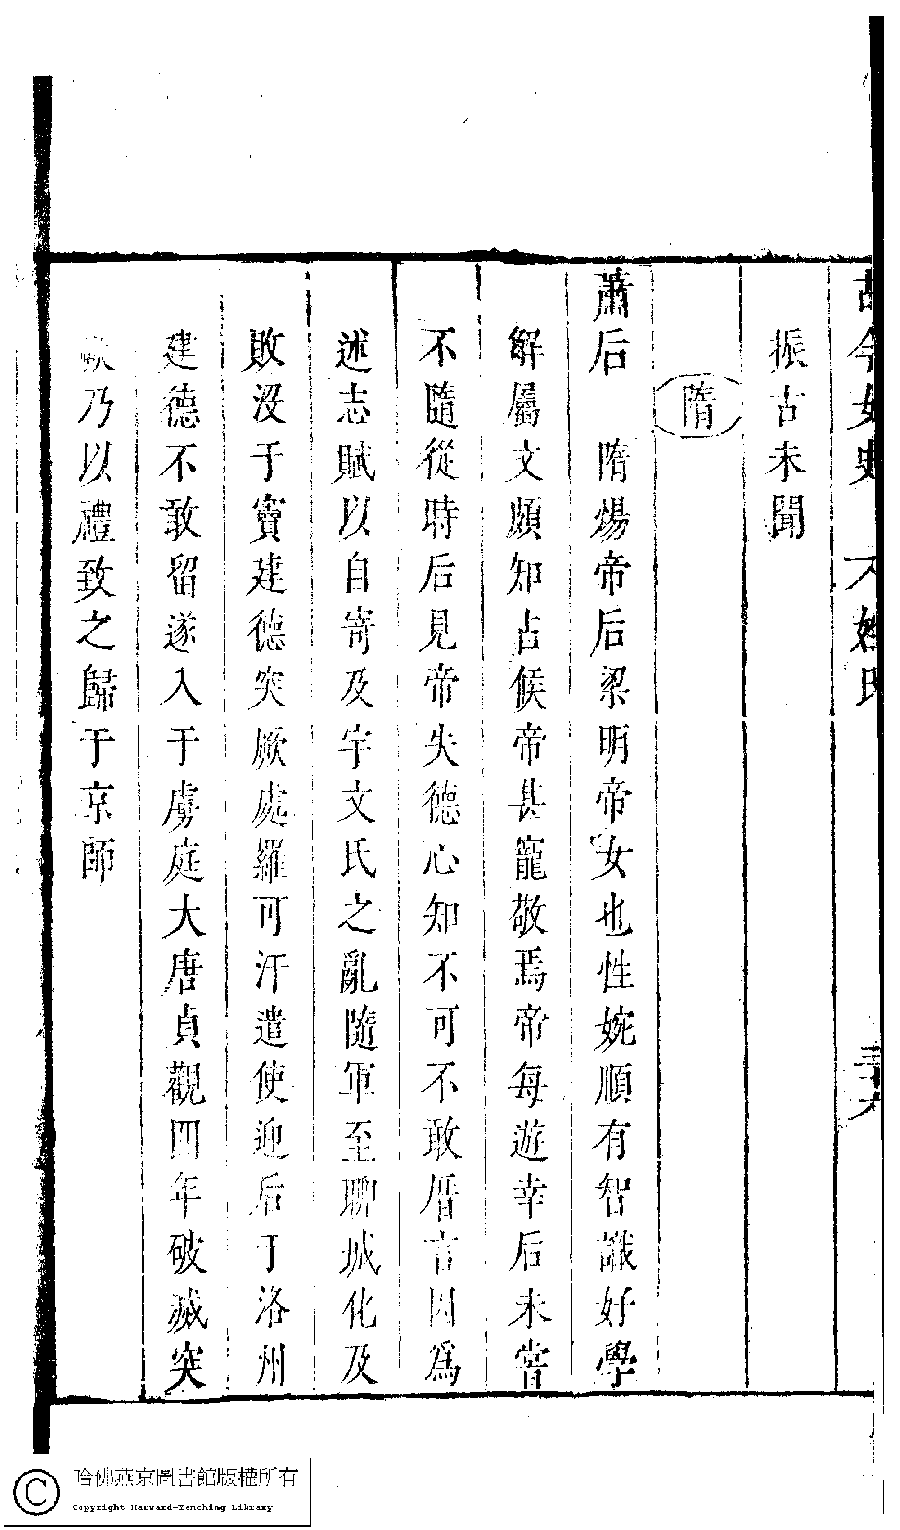 古今女史　　姓氏　　三十六
振古未聞
隋
蕭后　隋煬帝后梁明帝女也性婉順有智識好學
解屬文頗知占候帝甚寵敬焉帝每遊幸后未嘗
不隨從時后見帝失德心知不可不敢厝言因為
述志賦以自寄及宇文氏之亂隨軍至聊城化及
敗沒于竇建德突厥處羅可汗遣使迎后于洛州
建德不敢留遂入于虜庭大唐貞觀四年破滅突
厥乃以禮致之歸于京師
哈佛燕京圖書館版權所有
Copyright Harvard-Yenching Library